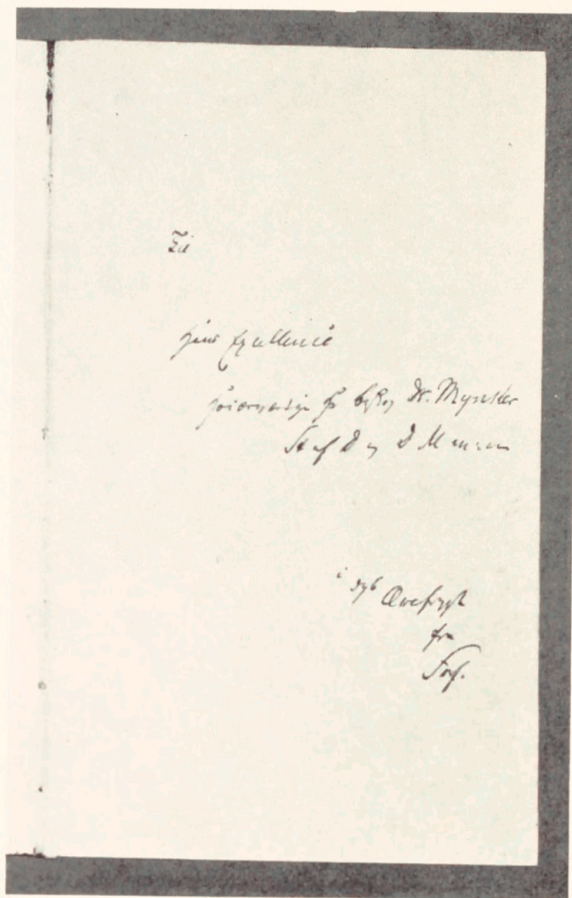 Til
Hans Excellence
Høiærværdige Hr Biskop Dr. Mynster
St. af D og D M
i dyb Ærefrygt
fra
Forf.